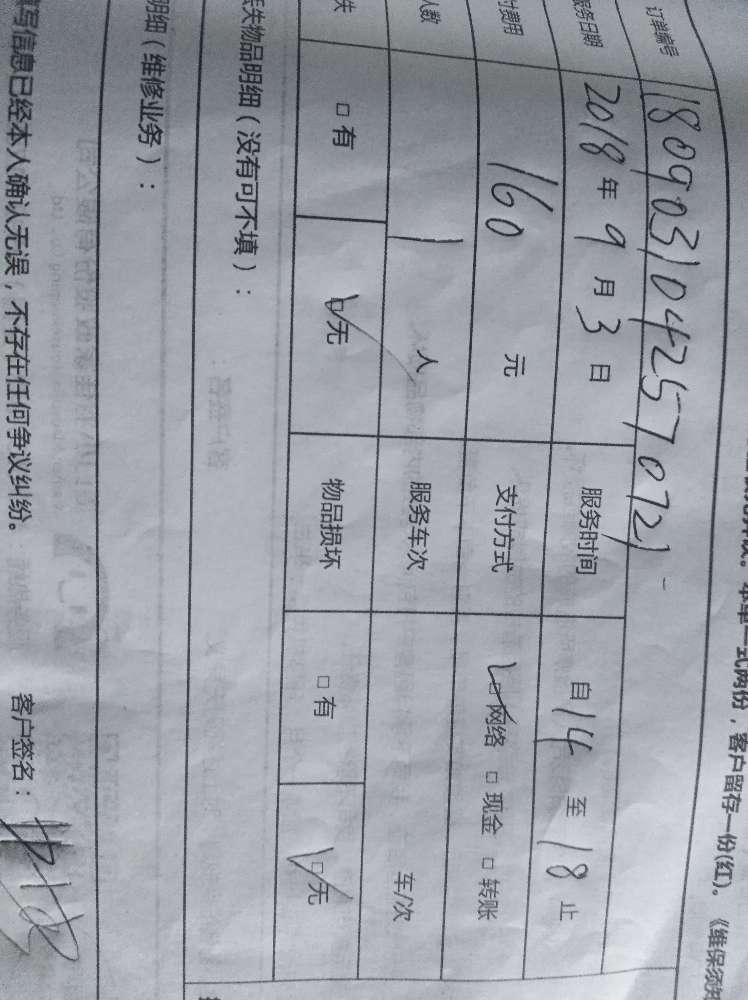 本单一式两份，客户留存一份(红)。《维保须知
订单编号 1809031042570721
服务日期 2018年9月3日 服务时间 自14至18止
付费用 160元 支付方式 ☑网络 □现金 □转账
人数 1人 服务车次 车/次
失 □有 ☑无 物品损坏 □有 ☑无
丢失物品明细（没有可不填）：
明细（维修业务）：
填写信息已经本人确认无误，不存在任何争议纠纷。 客户签名：